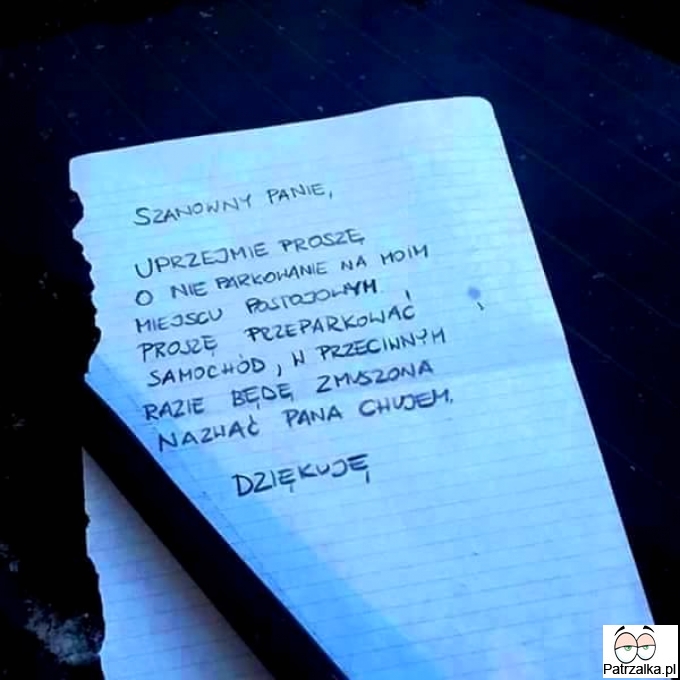 SZANOWNY PANIE,
UPRZEJMIE PROSZĘ
O NIE PARKOWANIE NA MOIM
MIEJSCU POSTOJOWYM I
PROSZĘ PRZEPARKOWAĆ
SAMOCHÓD, W PRZECIWNYM
RAZIE BĘDĘ ZMUSZONA
NAZWAĆ PANA CHUJEM.
DZIĘKUJĘ
Patrzalka.pl